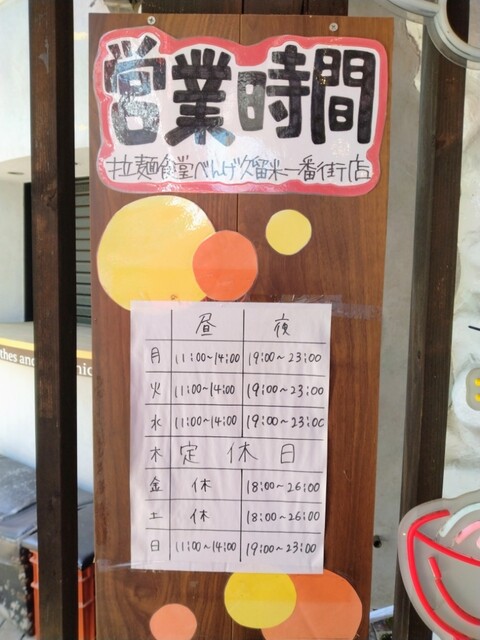 営業時間
拉麺食堂べんげ久留米一番街店
昼 夜
月 11:00~14:00 19:00~23:00
火 11:00~14:00 19:00~23:00
水 11:00~14:00 19:00~23:00
木 定休日
金 休 18:00~26:00
土 休 18:00~26:00
日 11:00~14:00 19:00~23:00
thes and